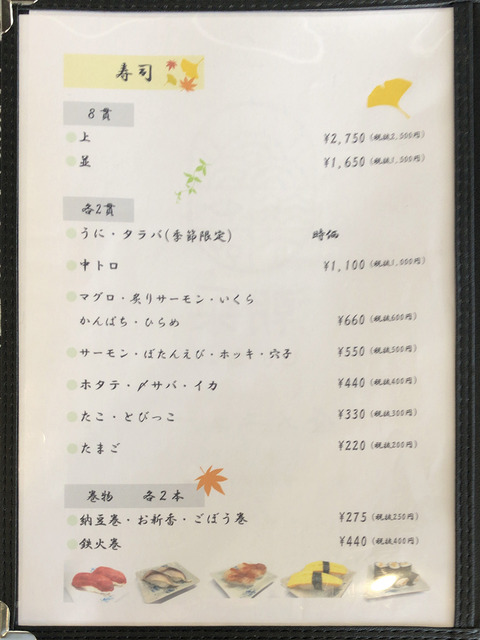 寿司
8貫
上 ¥2,750(税抜2,500円)
並 ¥1,650(税抜1,500円)
各2貫
うに・タラバ(季節限定) 時価
中トロ ¥1,100(税抜1,000円)
マグロ・炙りサーモン・いくら
かんぱち・ひらめ ¥660(税抜600円)
サーモン・ぼたんえび・ホッキ・穴子 ¥550(税抜500円)
ホタテ・〆サバ・イカ ¥440(税抜400円)
たこ・とびっこ ¥330(税抜300円)
たまご ¥220(税抜200円)
巻物 各2本
納豆巻・お新香・ごぼう巻 ¥275(税抜250円)
鉄火巻 ¥440(税抜400円)